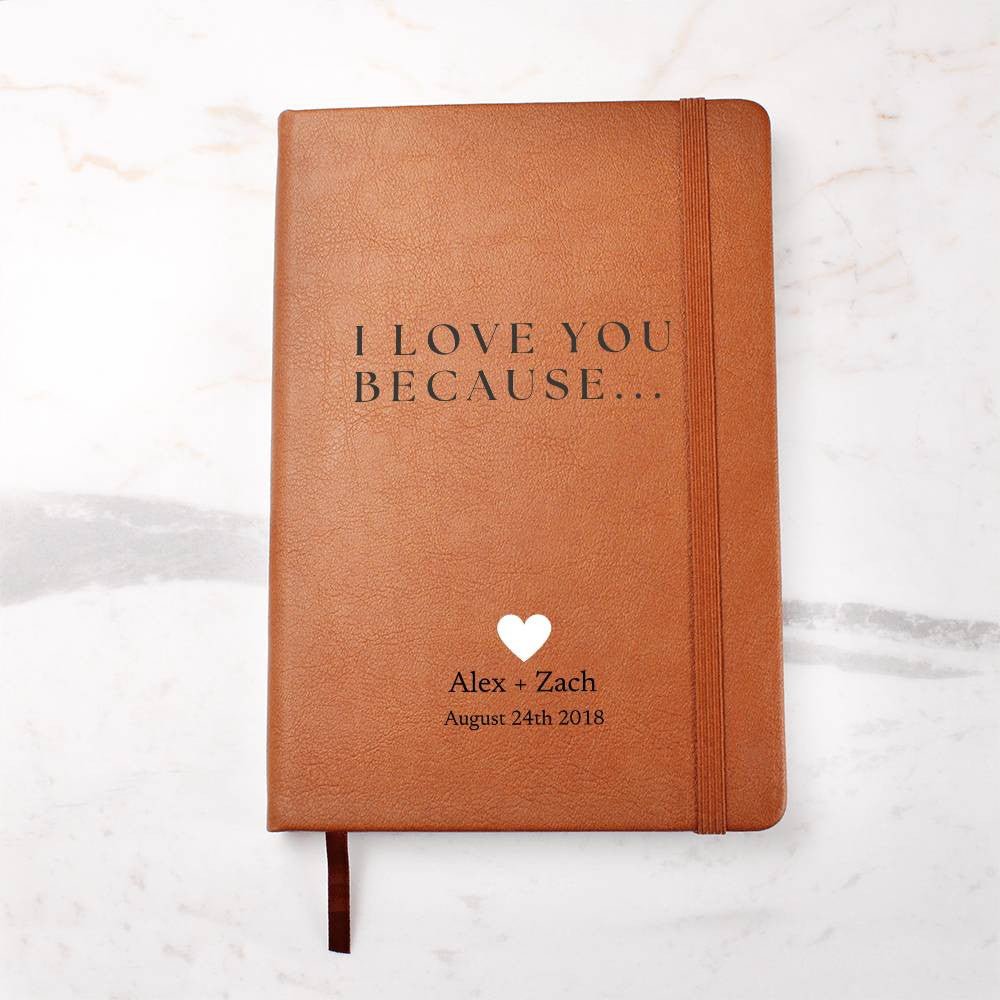 I LOVE YOU
BECAUSE...
Alex + Zach
August 24th 2018